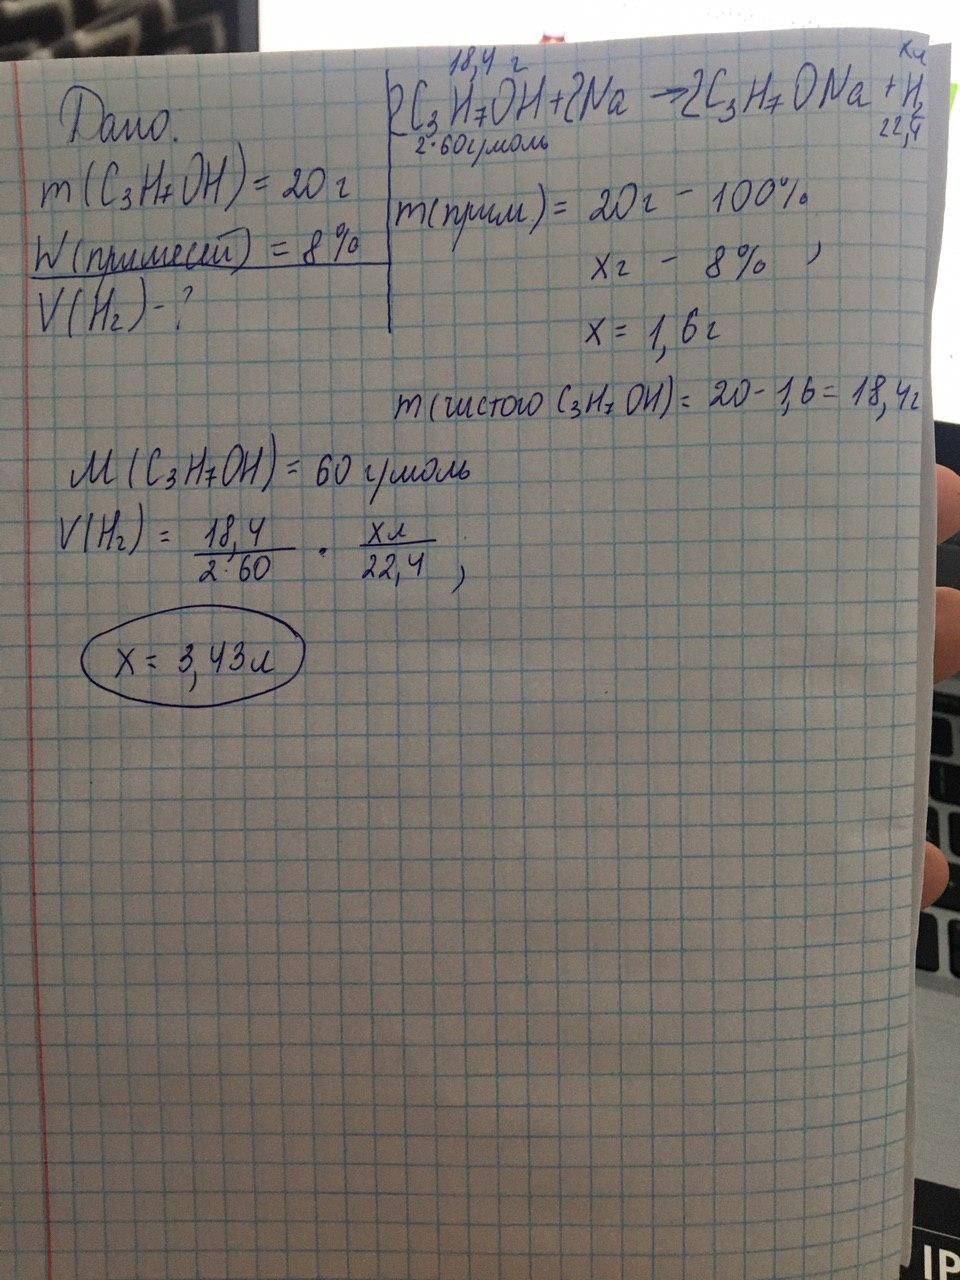 Дано:
m(C₃H₇OH) = 20г
W(примесей) = 8%
V(H₂) - ?
18,4 г
xл
2C₃H₇OH + 2Na → 2C₃H₇ONa + H₂
2·60г/моль
22,4
m(прим) = 20г - 100%
xг - 8% ,
x = 1,6г
m(чистого C₃H₇OH) = 20 - 1,6 = 18,4г
M(C₃H₇OH) = 60 г/моль
V(H₂) = 18,4/2·60 · xл/22,4 ;
x = 3,43л
IP